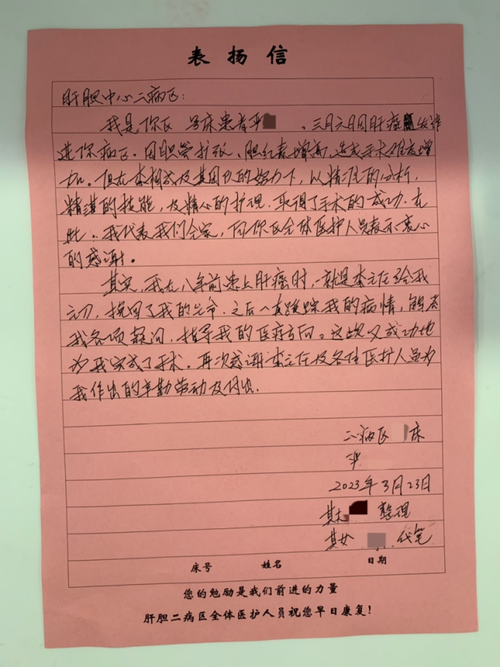 表扬信
肝胆中心二病区:
我是你区 号床患者 。三月六日因肝癌 住
进你病区。因胆管扩张、胆红素增高,造成手术难度增
加。但在李相成及其团队的努力下,以精准的分析,
精湛的技能,及精心的护理,取得了手术的成功,在
此,我代表我们全家,向你区全体医护人员表示衷心
的感谢。
其实,我在八年前患上肝癌时,就是李主任给我
主刀,挽回了我的生命。之后一直跟踪我的病情,解答
我各项疑问,指导我的医疗方向。这次又成功地
为我完成了手术。再次感谢李主任及各位医护人员为
我作出的辛勤劳动及付出.
二病区 床
2023年3月23日
其 整理
其女 代笔
床号 姓名 日期
您的勉励是我们前进的力量
肝胆二病区全体医护人员祝您早日康复!